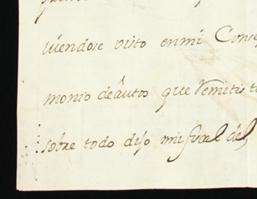 viendose visto en mi Cons
monio de âutos que remitis t
sobre todo dijo mi fiscal del